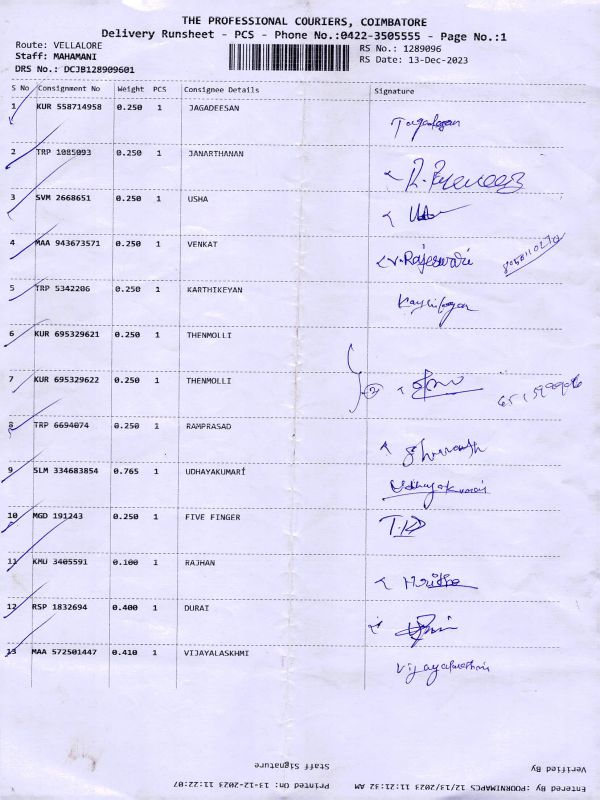 THE PROFESSIONAL COURIERS, COIMBATORE
Delivery Runsheet - PCS - Phone No.:0422-3505555 - Page No.:1
Route: VELLALORE
RS No.: 1289096
Staff: MAHAMANI
RS Date: 13-Dec-2023
DRS No.: DCJB128909601
S No Consignment No Weight PCS Consignee Details Signature
1 KUR 558714958 0.250 1 JAGADEESAN
2 TRP 1085093 0.250 1 JANARTHANAN
3 SVM 2668651 0.250 1 USHA
4 MAA 943673571 0.250 1 VENKAT V.Rajeswari
5 TRP 5342206 0.250 1 KARTHIKEYAN
6 KUR 695329621 0.250 1 THENMOLLI
7 KUR 695329622 0.250 1 THENMOLLI 2
8 TRP 6694074 0.250 1 RAMPRASAD
9 SLM 334683854 0.765 1 UDHAYAKUMARI Udhayakumari
10 MGD 191243 0.250 1 FIVE FINGER
11 KMU 3405591 0.100 1 RAJHAN
12 RSP 1832694 0.400 1 DURAI
13 MAA 572501447 0.410 1 VIJAYALASKHMI Vijayalakshmi
Staff Signature
Verified By
Printed On: 13-12-2023 11:22:07
Entered By :POORNIMAPCS 12/13/2023 11:21:32 AM